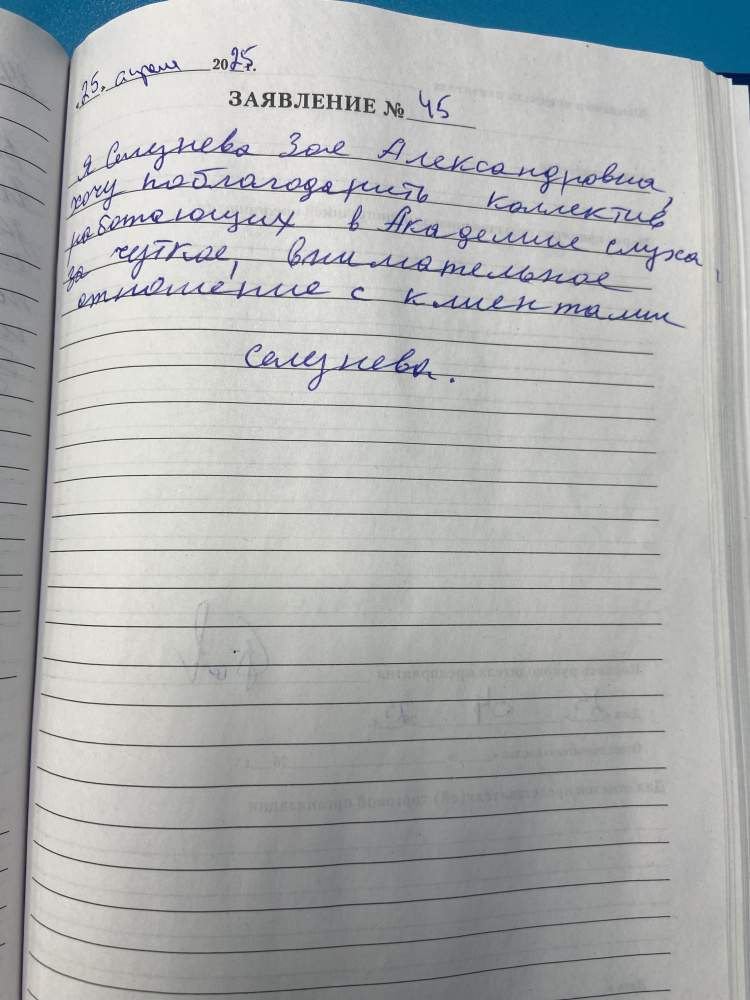 25. апреля 2025 г.
ЗАЯВЛЕНИЕ № 45
я Селезнева Зоя Александровна,
хочу поблагодарить коллектив
работающих в Академии слуха,
за чуткое, внимательное
отношение с клиентами
Селезнева.